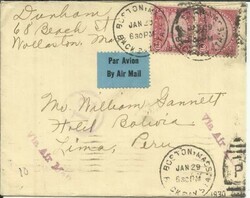 Dunham
68 Beach St
Wollaston, Mass
BOSTON, MASS.
JAN 29
6 30 PM
BACK BAY
Par Avion
By Air Mail
Mr. William Jannett
Hotel Bolivia
Lima, Peru
Via Air
BOSTON, MASS.
JAN 29
6 30 PM
1930